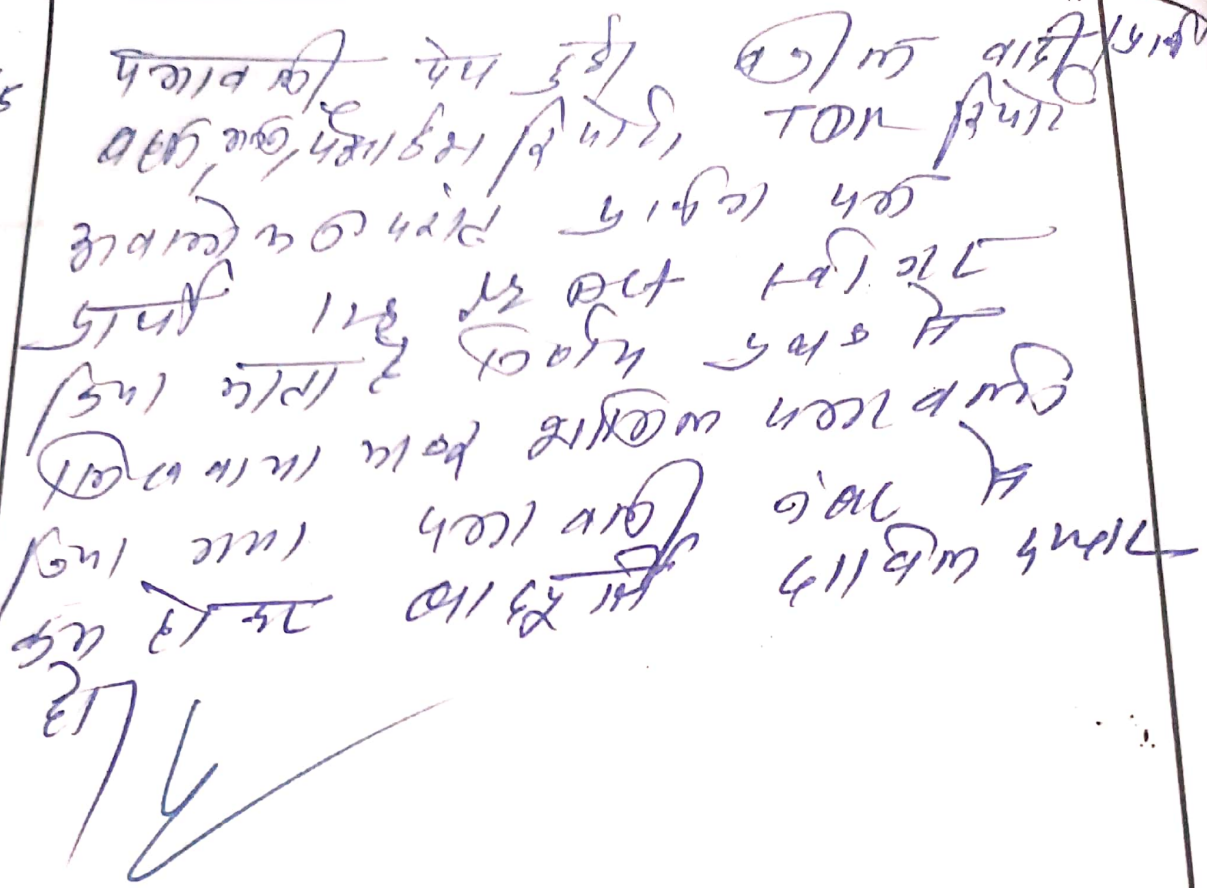 पत्रावली पेश हुई। वकील वादी/प्रार्थी
रिपोर्ट, TDR रिपोर्ट
अवलोकन उपरांत प्रार्थना पत्र
प्रार्थी स्वीकार
किया जाता है निर्णय पृथक से
लिखवाया जाकर शामिल पत्रावली
किया गया पत्रावली नंबर से
कम होकर बाद पूर्ति दाखिल दफ्तर
हो।